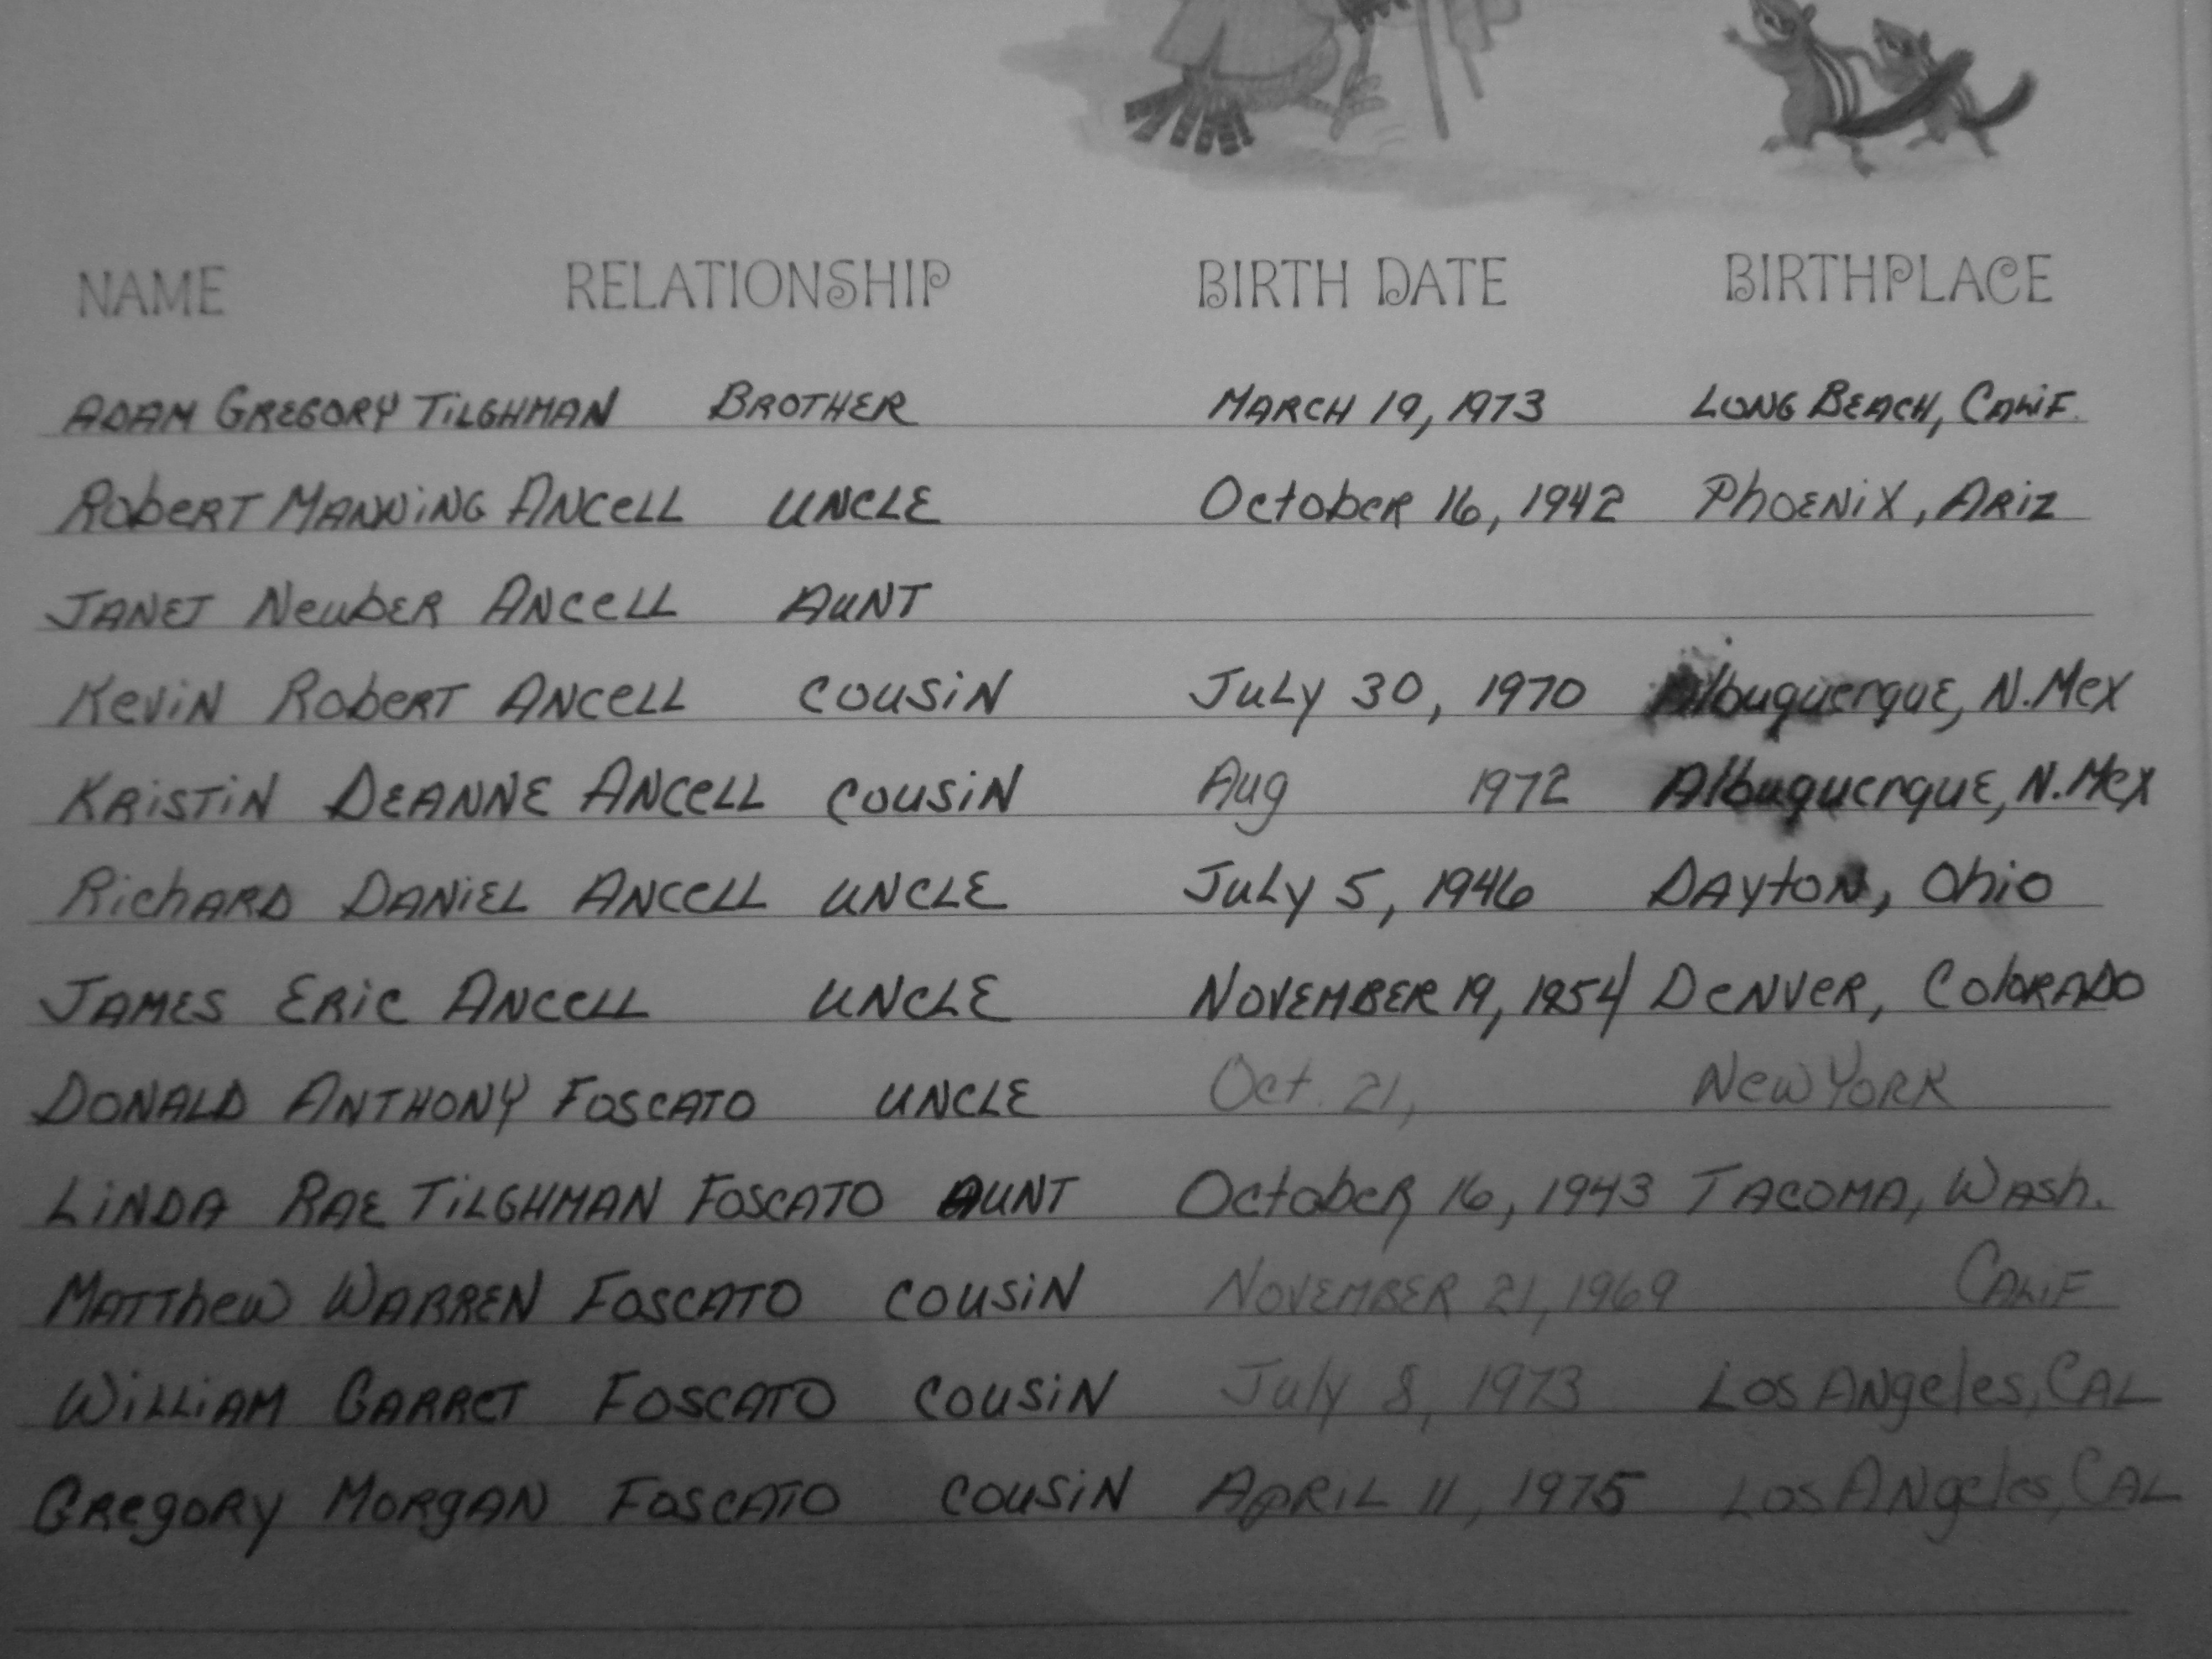 NAME RELATIONSHIP BIRTH DATE BIRTHPLACE
ADAM GREGORY TILGHMAN BROTHER MARCH 19, 1973 LONG BEACH, CALIF.
ROBERT MANNING ANCELL UNCLE October 16, 1942 PHOENIX, ARIZ
JANET NEUBER ANCELL AUNT
KEVIN ROBERT ANCELL COUSIN JULY 30, 1970 Albuquerque, N.Mex
KRISTIN DEANNE ANCELL COUSIN Aug 1972 Albuquerque, N.Mex
RICHARD DANIEL ANCELL UNCLE JULY 5, 1946 DAYTON, Ohio
JAMES ERIC ANCELL UNCLE NOVEMBER 19, 1954 DENVER, COLORADO
DONALD ANTHONY FOSCATO UNCLE Oct. 21, NEW YORK
LINDA RAE TILGHMAN FOSCATO AUNT October 16, 1943 TACOMA, WASH.
MATTHEW WARREN FOSCATO COUSIN NOVEMBER 21, 1969 CALIF
WILLIAM GARRET FOSCATO COUSIN July 8, 1973 LOS ANgeles, CAL
GREGORY MORGAN FOSCATO COUSIN APRIL 11, 1975 LOS ANgeles, CAL